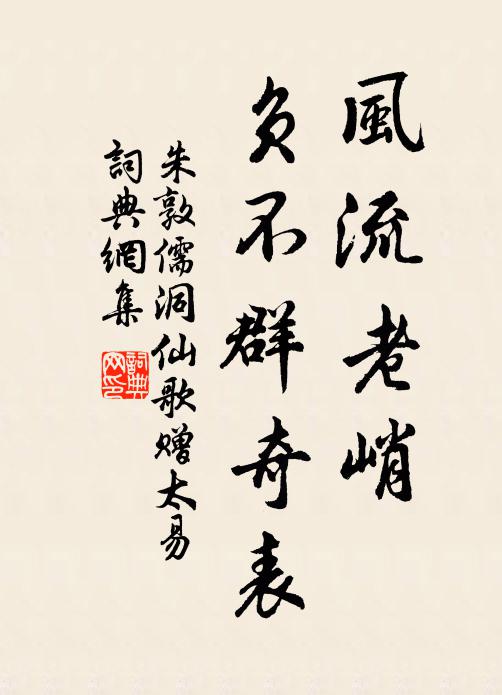 風流老峭
負不群奇表
朱敦儒洞仙歌赠太易
詞典網集
詞典
网印